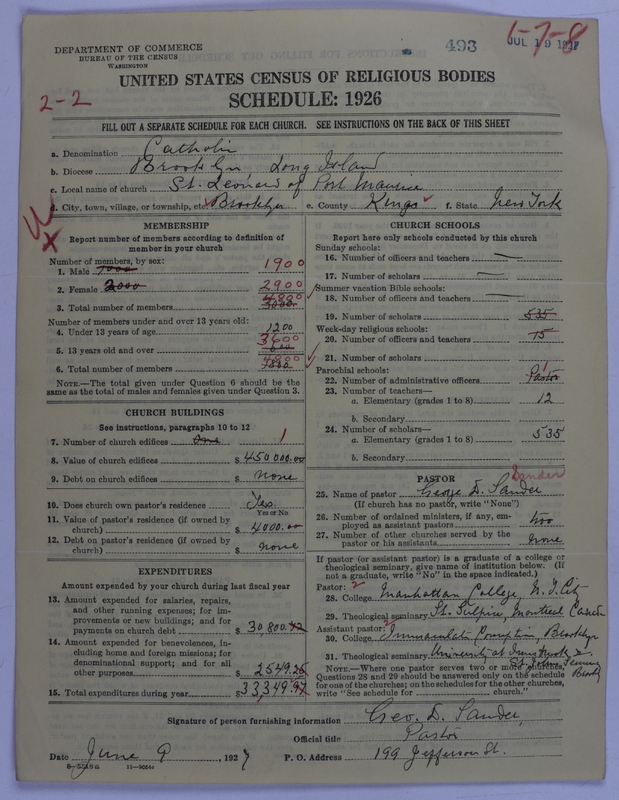 DEPARTMENT OF COMMERCE
BUREAU OF THE CENSUS
WASHINGTON
493
JUL 19 1927
1-7-8
2-2
UNITED STATES CENSUS OF RELIGIOUS BODIES
SCHEDULE: 1926
FILL OUT A SEPARATE SCHEDULE FOR EACH CHURCH. SEE INSTRUCTIONS ON THE BACK OF THIS SHEET
a. Denomination Catholic
b. Diocese Brooklyn, Long Island
c. Local name of church St. Leonard of Port Maurice
d. City, town, village, or township, etc. Brooklyn e. County Kings f. State New York
MEMBERSHIP
Report number of members according to definition of member in your church
Number of members, by sex:
1. Male 1900
2. Female 2000 2900
3. Total number of members 4800
Number of members under and over 13 years old:
4. Under 13 years of age 1200
5. 13 years old and over 3600
6. Total number of members 4800
NOTE.—The total given under Question 6 should be the same as the total of males and females given under Question 3.
CHURCH BUILDINGS
See instructions, paragraphs 10 to 12
7. Number of church edifices One 1
8. Value of church edifices $ 450000.00
9. Debt on church edifices $ none
10. Does church own pastor's residence Yes
Yes or No
11. Value of pastor's residence (if owned by church) $ 4000.00
12. Debt on pastor's residence (if owned by church) $ none
EXPENDITURES
Amount expended by your church during last fiscal year
13. Amount expended for salaries, repairs, and other running expenses; for improvements or new buildings; and for payments on church debt $ 30,800.72
14. Amount expended for benevolences, including home and foreign missions; for denominational support; and for all other purposes $ 2549.25
15. Total expenditures during year $ 33349.97
CHURCH SCHOOLS
Report here only schools conducted by this church
Sunday schools:
16. Number of officers and teachers —
17. Number of scholars —
Summer vacation Bible schools:
18. Number of officers and teachers —
19. Number of scholars 535
Week-day religious schools:
20. Number of officers and teachers 15
21. Number of scholars
Parochial schools:
22. Number of administrative officers Pastor 1
23. Number of teachers—
a. Elementary (grades 1 to 8) 12
b. Secondary
24. Number of scholars—
a. Elementary (grades 1 to 8) 535
b. Secondary
PASTOR
Sander
25. Name of pastor George D. Sander
(If church has no pastor, write "None")
26. Number of ordained ministers, if any, employed as assistant pastors two
27. Number of other churches served by the pastor or his assistants none
If pastor (or assistant pastor) is a graduate of a college or theological seminary, give name of institution below. (If not a graduate, write "No" in the space indicated.)
Pastor: 2
28. College Manhattan College, N. Y. City
29. Theological seminary St. Sulpice, Montreal Canada
Assistant pastor: 2
30. College Immaculate Conception, Brooklyn
31. Theological seminary University at Innsbruck &
St. Johns Seminary Brooklyn
NOTE.—Where one pastor serves two or more churches, Questions 28 and 29 should be answered only on the schedule for one of the churches; on the schedules for the other churches, write "See schedule for church."
Signature of person furnishing information Geo. D. Sander
Official title Pastor
Date June 9, 1927 P. O. Address 199 Jefferson St.
8-5518a 11-9004